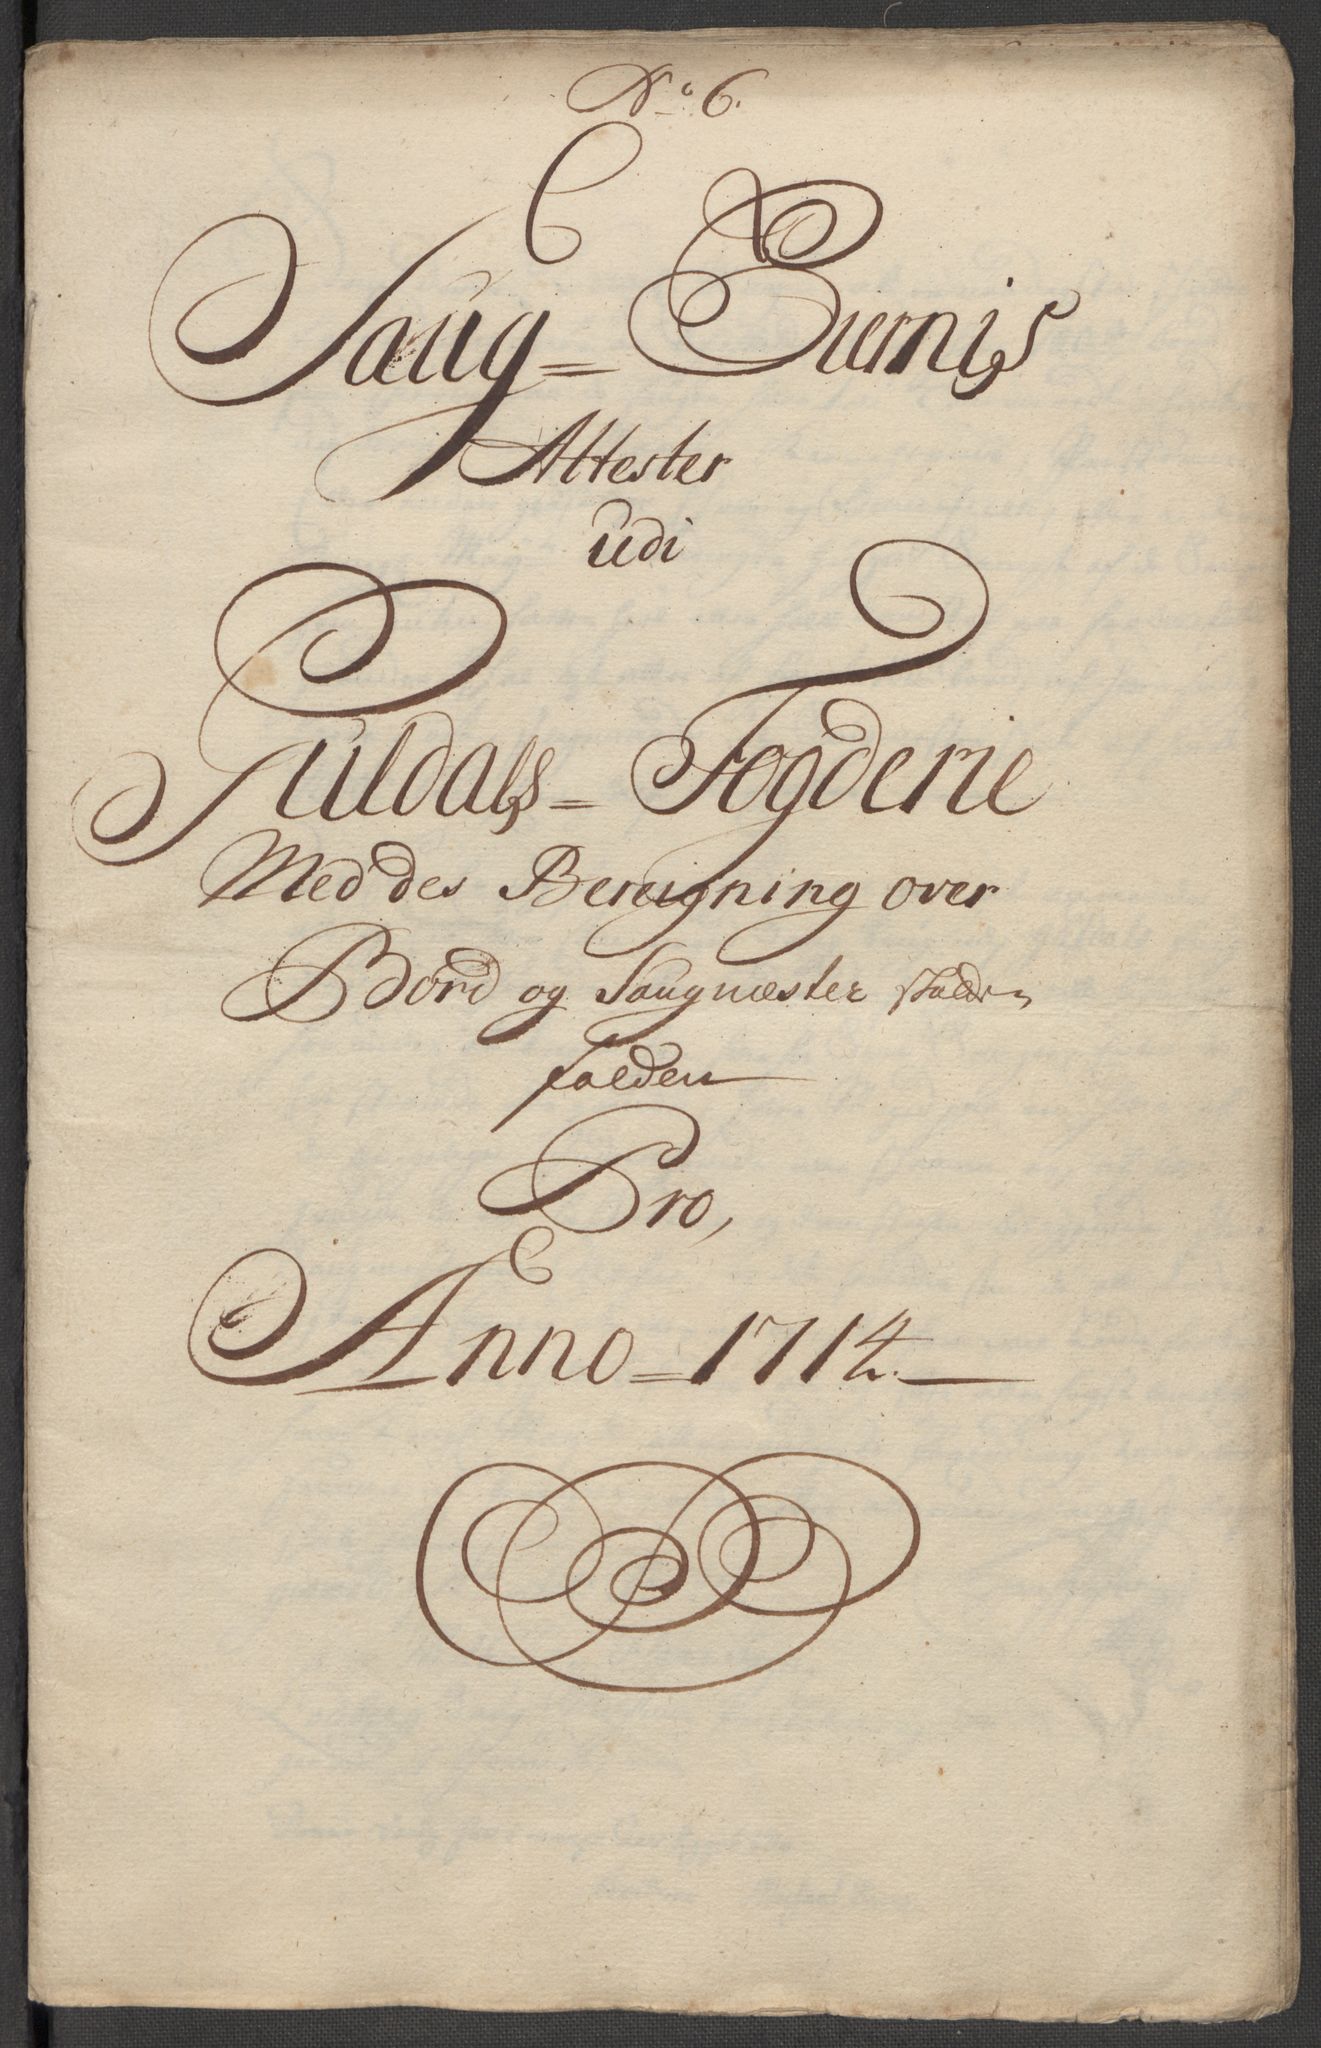 No 6.
Saug= Eiernis
Attester
Udi
Guldals= Fogderie
Med des Bereigning over
Bord og Saugmester skatten
falden
Pro,
Anno = 1714.